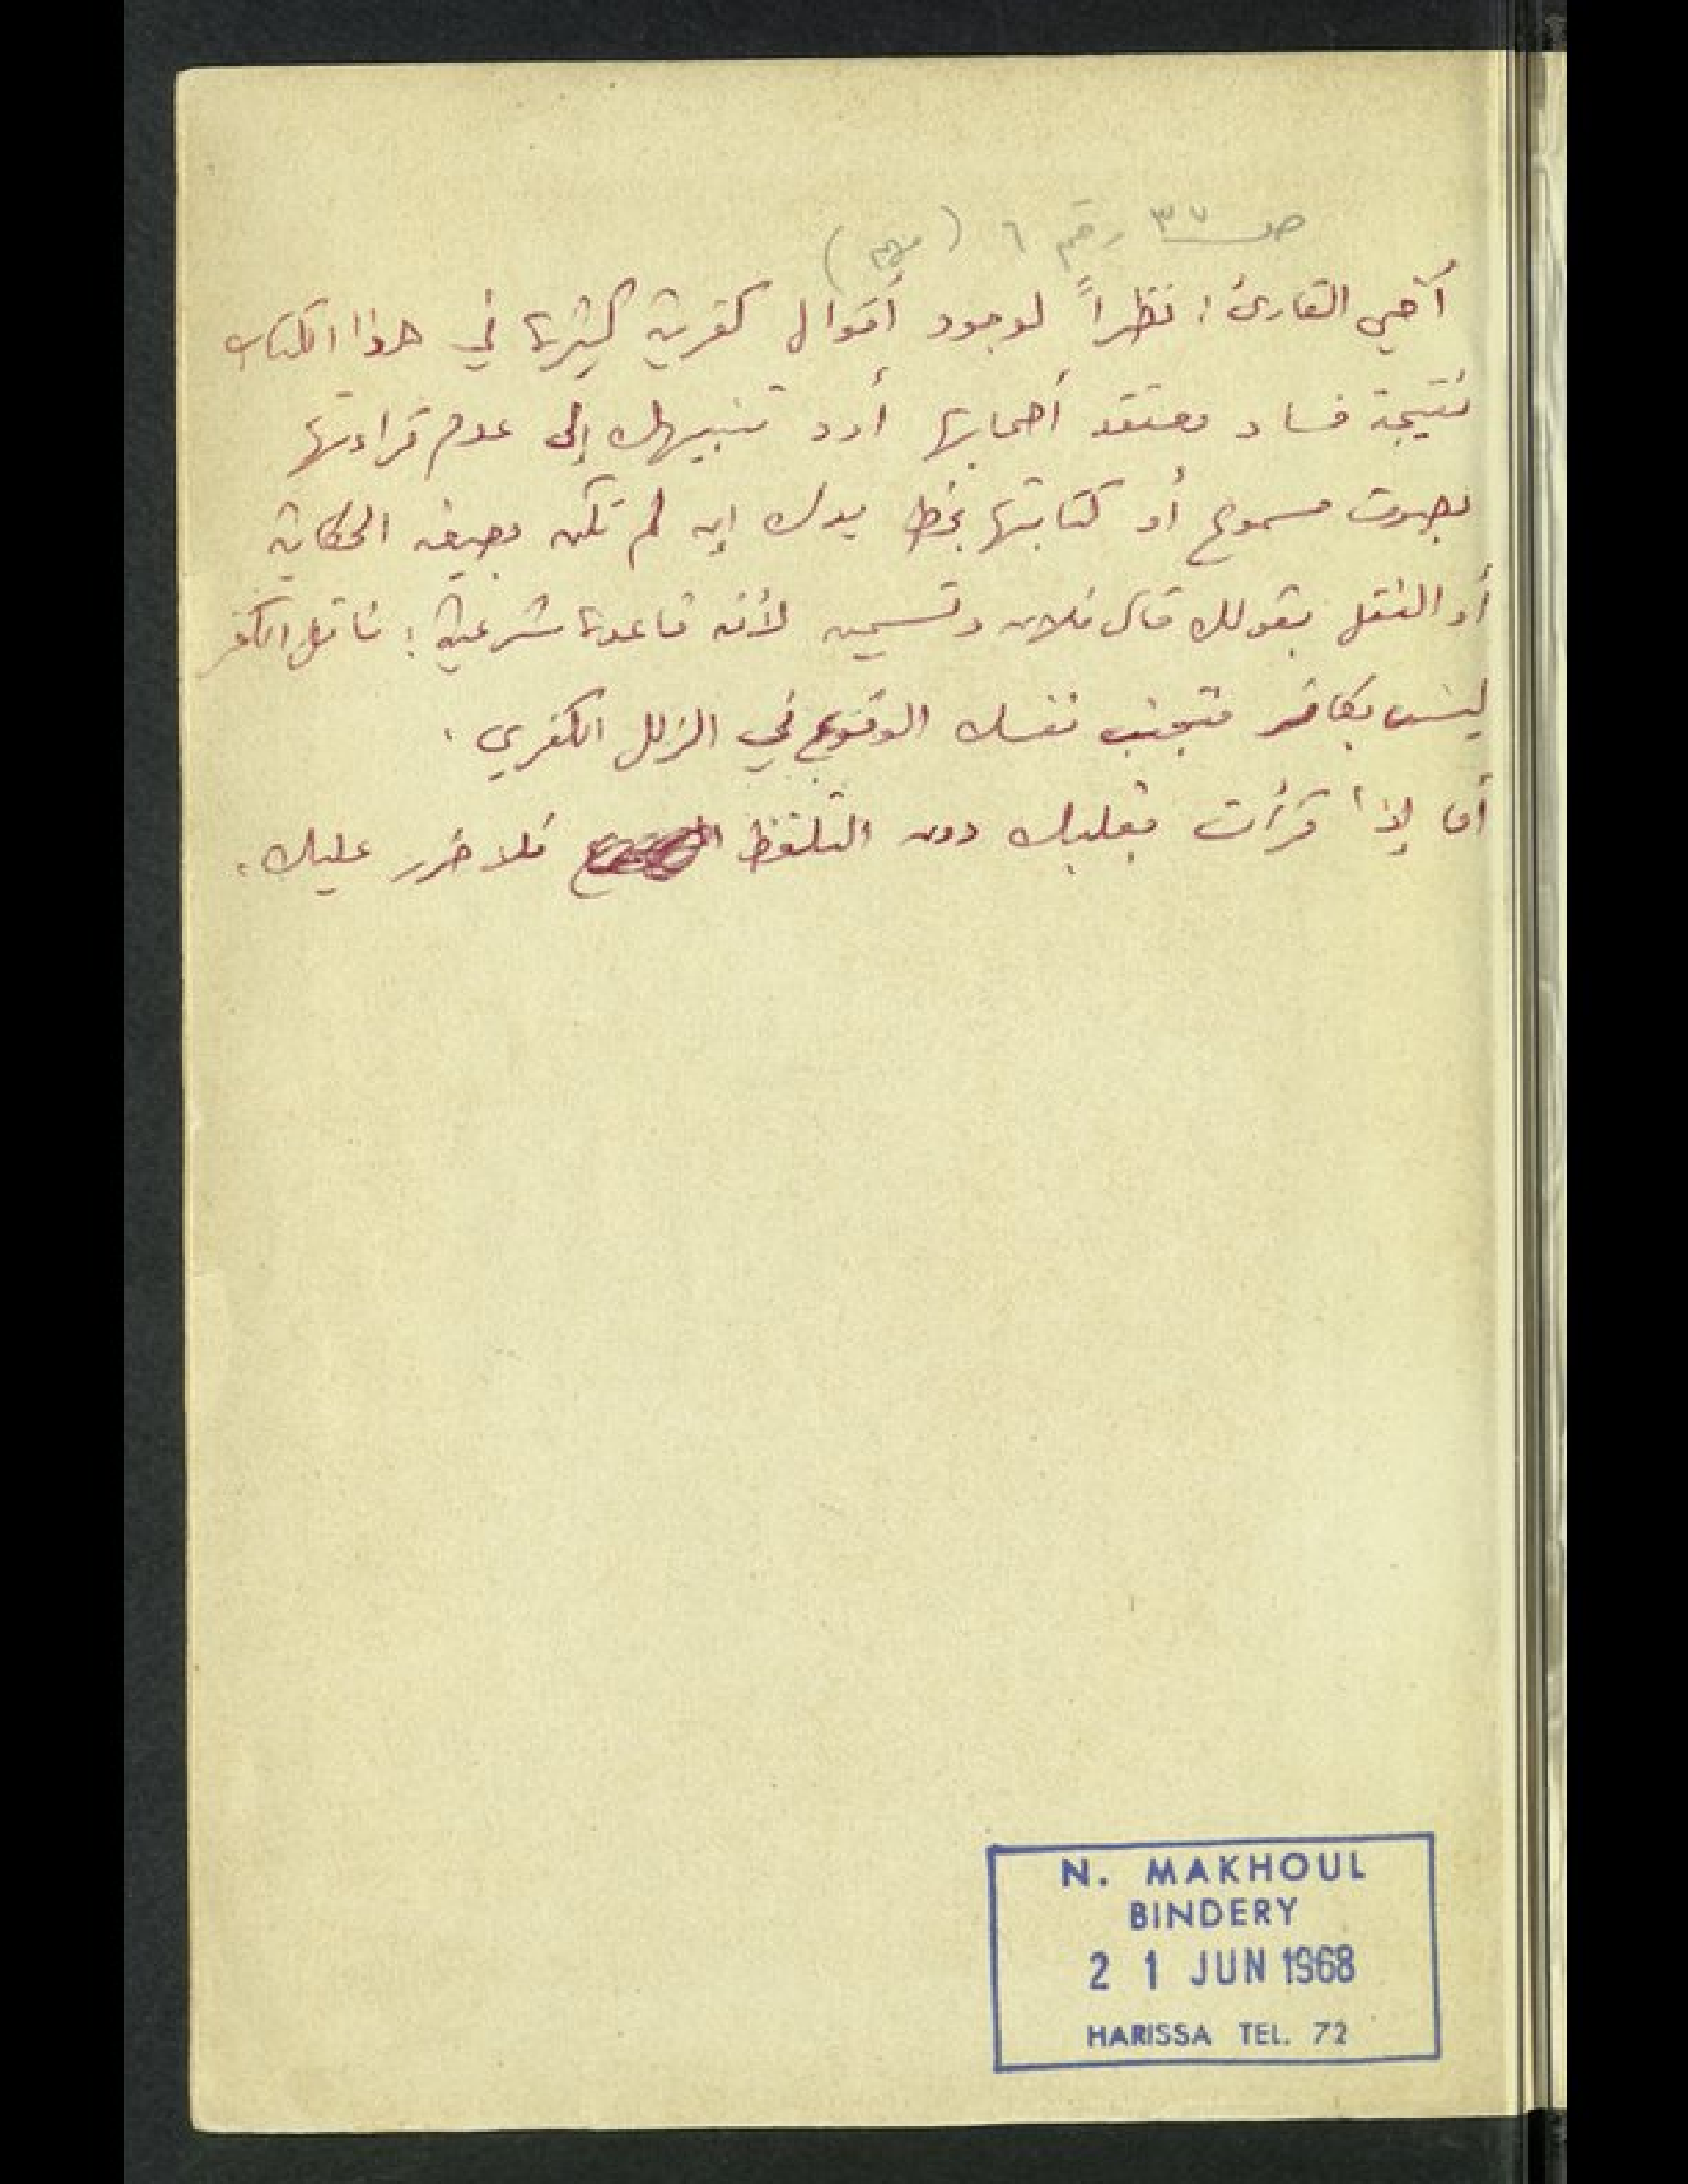 صـ ٣٧ رقم ٦ (مهم)
أخي القارئ: نظراً لوجود أقوال كفرية كثيرة في هذا الكتاب
نتيجة فساد معتقد أصحابها أود تنبيهك إلى عدم قراءتها
بصوت مسموع أو كتابتها بخط يدك إن لم تكن بصيغة الحكاية
أو النقل بقولك قال فلان وتسميه لأنه قاعدة شرعية: ناقل الكفر
ليس بكافر فتجنب نفسك الوقوع في الزلل الكفري.
أما إذا قرأت بقلبك دون التلفظ فلا ضرر عليك.
N. MAKHOUL
BINDERY
2 1 JUN 1968
HARISSA TEL. 72